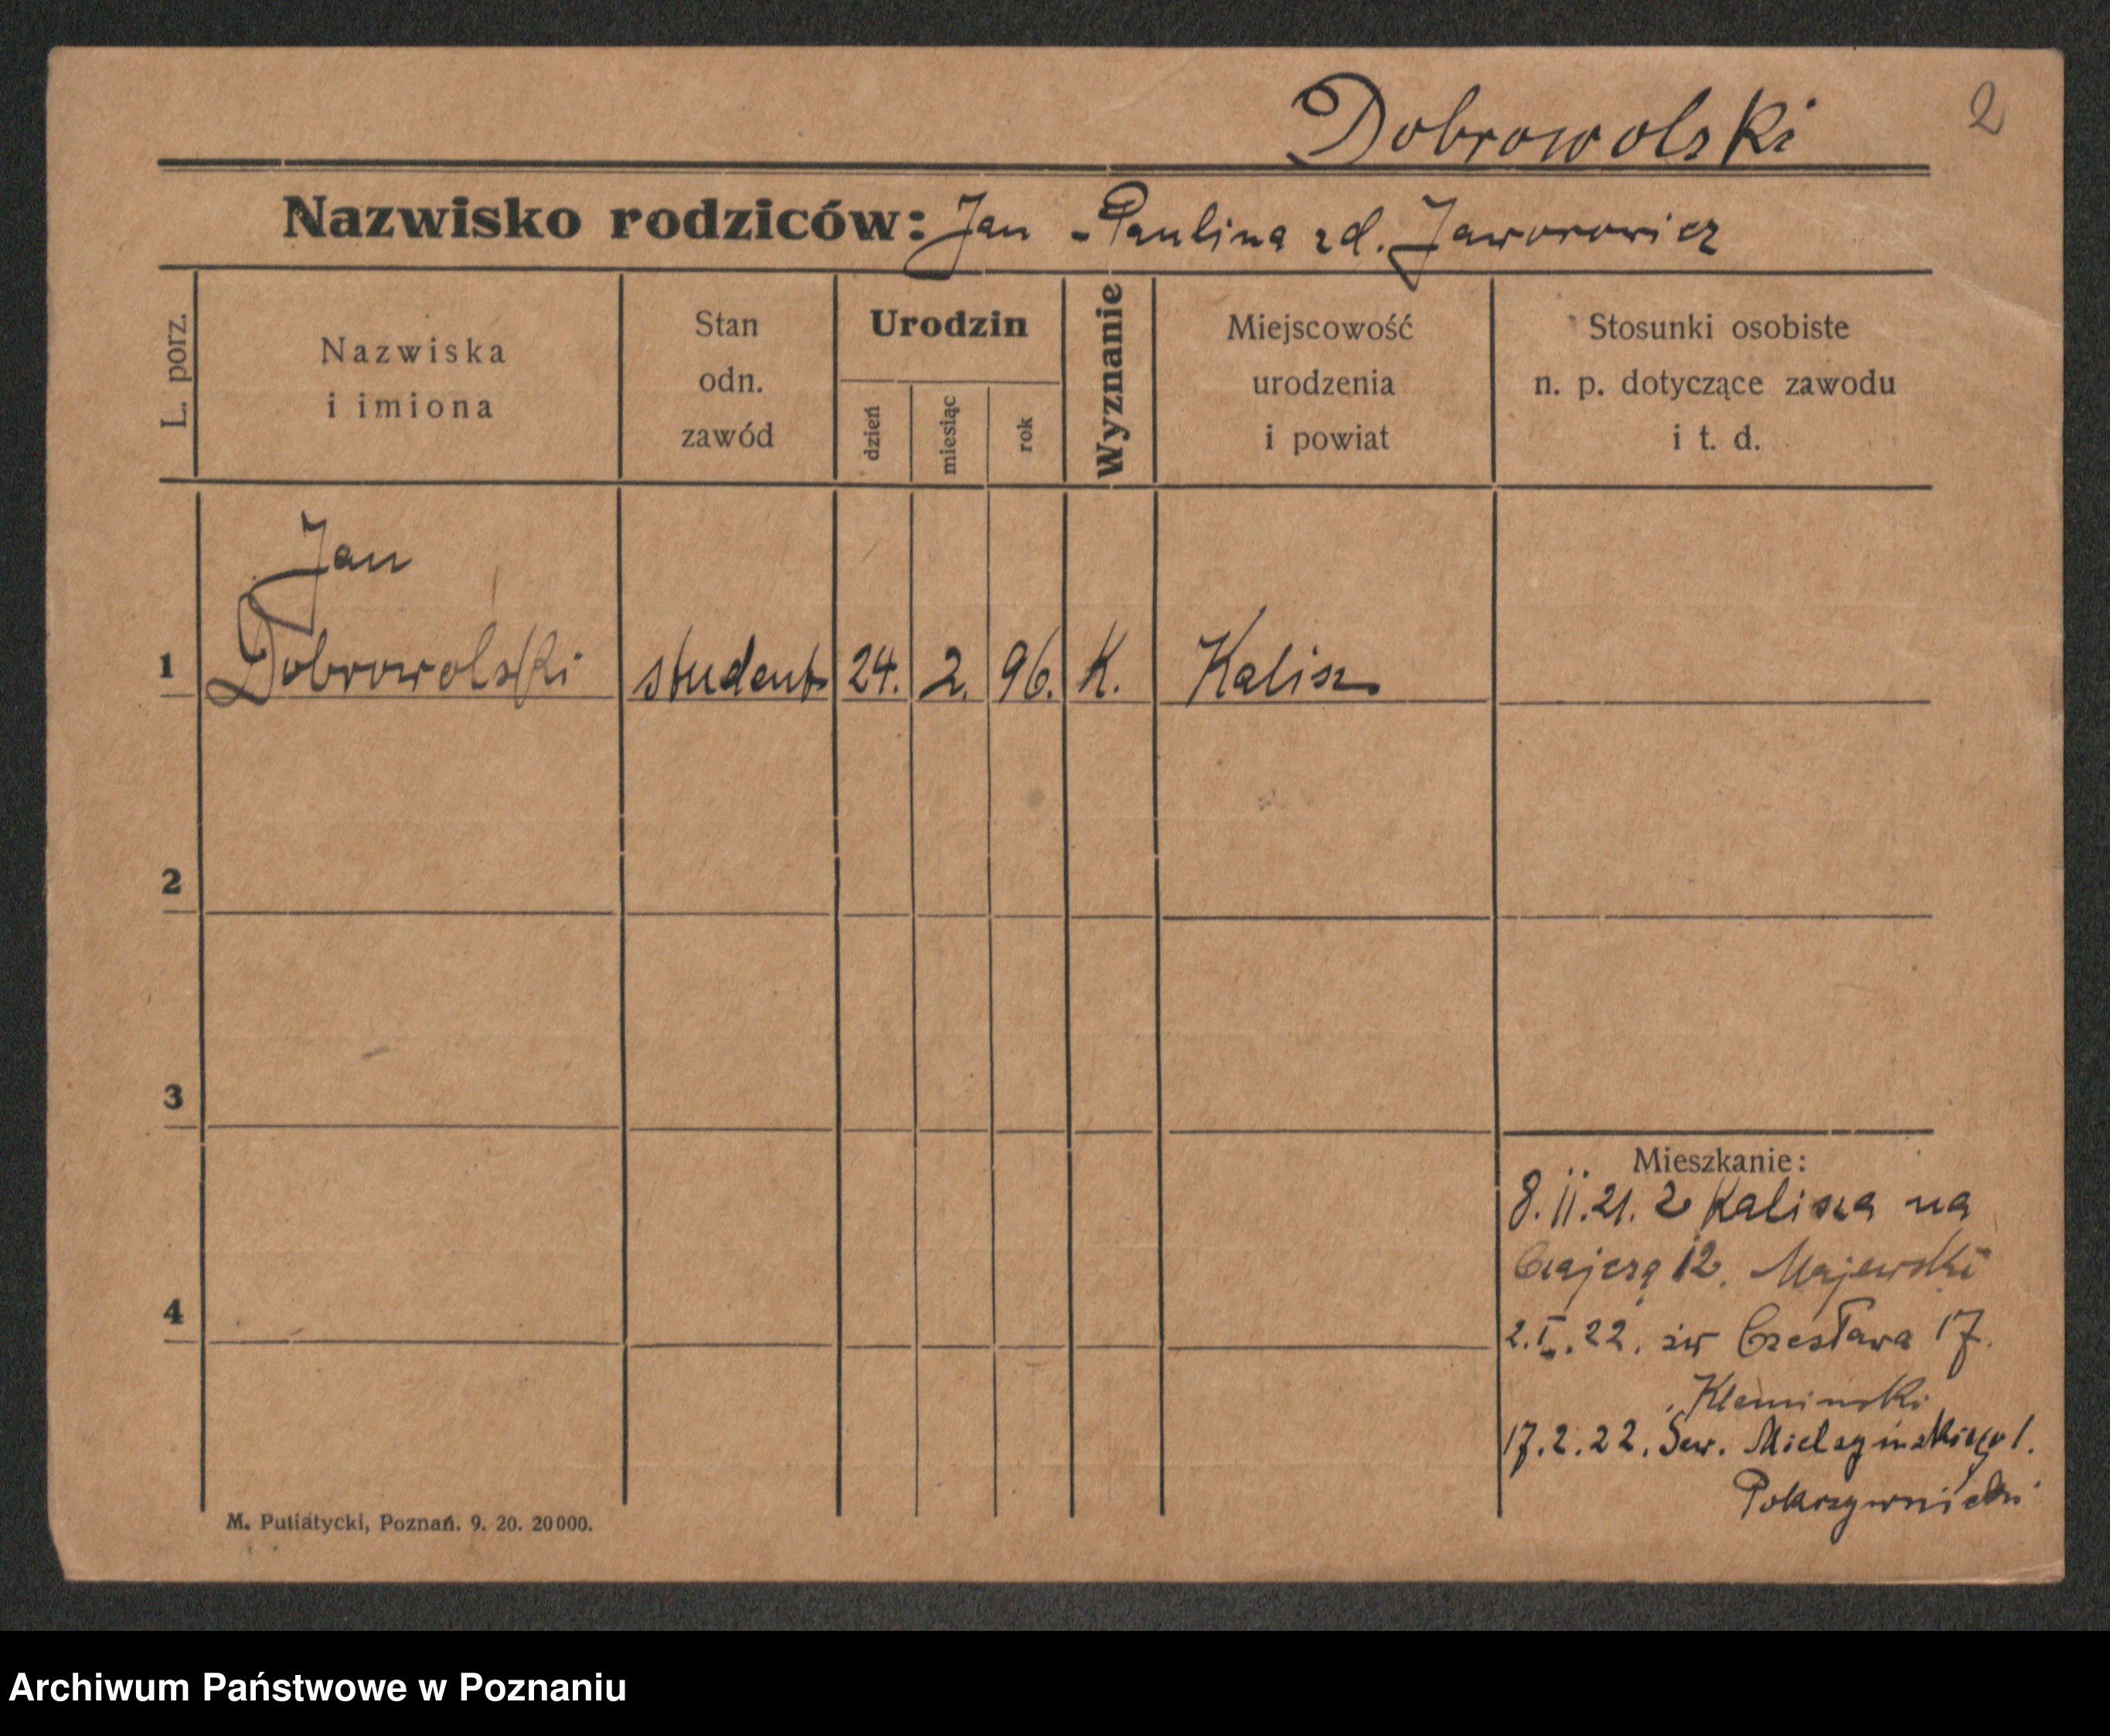 Dobrowolski 2
Nazwisko rodziców: Jan - Paulina zd. Jaworowicz
L. porz.
Nazwiska
i imiona
Stan
odn.
zawód
Urodzin
dzień
miesiąc
rok
Wyznanie
Miejscowość
urodzenia
i powiat
Stosunki osobiste
n. p. dotyczące zawodu
i t. d.
Jan
1 Dobrowolski student 24. 2. 96. K. Kalisz
2
3
4
Mieszkanie:
8. II. 21. z Kalisza na
12. Majewski
2. I. 22. św Czesława 17.
17. 2. 22. Sew. Mielżyńskiego 1.
Pokrzywnicki
M. Putiatycki, Poznań. 9. 20. 20000.
Archiwum Państwowe w Poznaniu